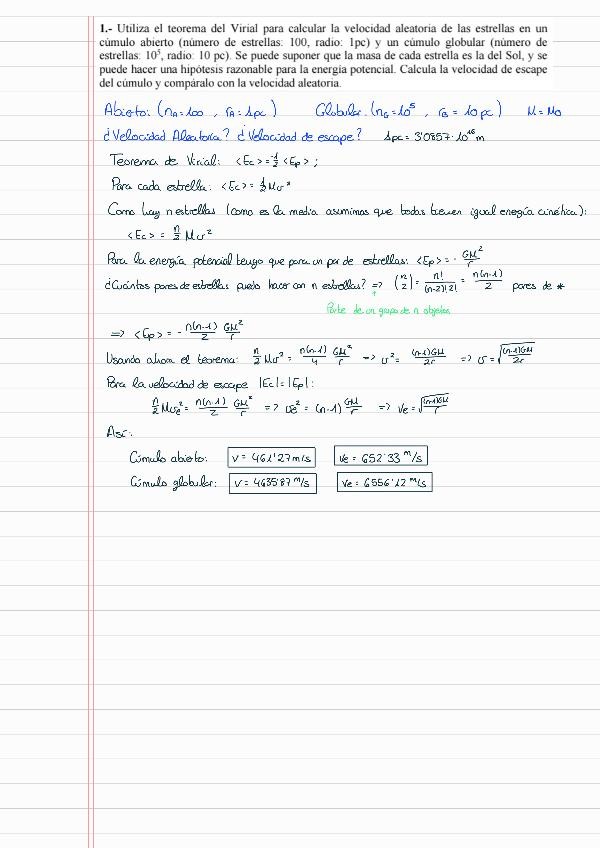 1.- Utiliza el teorema del Virial para calcular la velocidad aleatoria de las estrellas en un
cúmulo abierto (número de estrellas: 100, radio: 1pc) y un cúmulo globular (número de
estrellas: 10⁵, radio: 10 pc). Se puede suponer que la masa de cada estrella es la del Sol, y se
puede hacer una hipótesis razonable para la energía potencial. Calcula la velocidad de escape
del cúmulo y compáralo con la velocidad aleatoria.
Abierto: (n_A=100 , r_A=1pc) Globular: (n_G=10⁵ , r_G=10pc) M=M⊙
¿Velocidad Aleatoria? ¿Velocidad de escape? 1pc=3'0857·10¹⁶ m
Teorema de Virial: <Ec>=-1/2 <Ep> ;
Para cada estrella: <Ec>=1/2 Mv²
Como hay n estrellas (como es la media asumimos que todas tienen igual energía cinética):
<Ec> = n/2 Mv²
Para la energía potencial tengo que para un par de estrellas: <Ep>=- GM²/r
¿Cuántos pares de estrellas puedo hacer con n estrellas? => (n 2) = n!/(n-2)!2! = n(n-1)/2 pares de *
Parte de un grupo de n objetos
=> <Ep> = - n(n-1)/2 GM²/r
Usando ahora el teorema: n/2 Mv² = n(n-1)/4 GM²/r => v² = (n-1)GM/2r => v = √((n-1)GM/2r)
Para la velocidad de escape |Ec|=|Ep|:
n/2 Mve² = n(n-1)/2 GM²/r => ve² = (n-1) GM/r => ve = √((n-1)GM/r)
Así:
Cúmulo abierto: v = 461'27 m/s ve = 652'33 m/s
Cúmulo globular: v = 4635'87 m/s ve = 6556'12 m/s